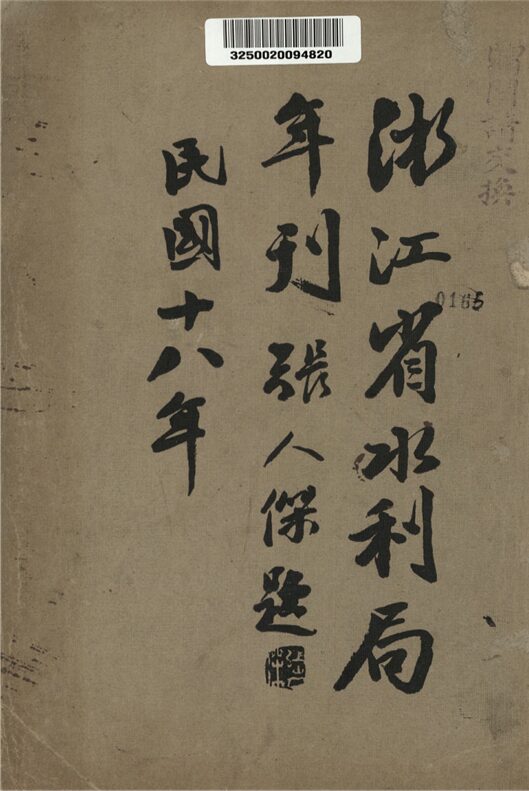 3250020094820
浙江省水利局
年刊 張人傑題
民國十八年
0165
交換